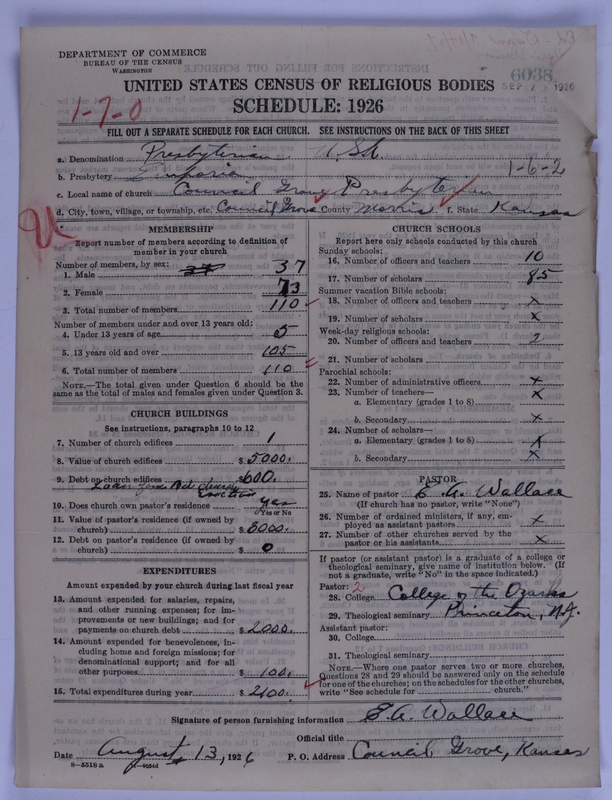 DEPARTMENT OF COMMERCE
BUREAU OF THE CENSUS
WASHINGTON
6038
SEP 7 1926
UNITED STATES CENSUS OF RELIGIOUS BODIES
SCHEDULE: 1926
1-7-0
FILL OUT A SEPARATE SCHEDULE FOR EACH CHURCH. SEE INSTRUCTIONS ON THE BACK OF THIS SHEET
a. Denomination Presbyterian
b. Presbytery Emporia
1-6-2
c. Local name of church Council Grove Presbyterian
d. City, town, village, or township, etc. Council Grove County Morris f. State Kansas
MEMBERSHIP
Report number of members according to definition of
member in your church
Number of members, by sex:
1. Male 37
2. Female 73
3. Total number of members 110
Number of members under and over 13 years old:
4. Under 13 years of age 5
5. 13 years old and over 105
6. Total number of members 110
NOTE.—The total given under Question 6 should be the
same as the total of males and females given under Question 3.
CHURCH BUILDINGS
See instructions, paragraphs 10 to 12
7. Number of church edifices 1
8. Value of church edifices $5000.
9. Debt on church edifices $600.
Loan from Bd Church
10. Does church own pastor's residence Yes
Yes or No
11. Value of pastor's residence (if owned by
church) $3000.
12. Debt on pastor's residence (if owned by
church) $0
EXPENDITURES
Amount expended by your church during last fiscal year
13. Amount expended for salaries, repairs,
and other running expenses; for im-
provements or new buildings; and for
payments on church debt $2000.
14. Amount expended for benevolences, in-
cluding home and foreign missions; for
denominational support; and for all
other purposes $100.
15. Total expenditures during year $2100.
CHURCH SCHOOLS
Report here only schools conducted by this church
Sunday schools:
16. Number of officers and teachers 10
17. Number of scholars 85
Summer vacation Bible schools:
18. Number of officers and teachers x
19. Number of scholars x
Week-day religious schools:
20. Number of officers and teachers 2
21. Number of scholars
Parochial schools:
22. Number of administrative officers x
23. Number of teachers—
a. Elementary (grades 1 to 8) x
b. Secondary x
24. Number of scholars—
a. Elementary (grades 1 to 8) x
b. Secondary x
PASTOR
25. Name of pastor E. A. Wallace
(If church has no pastor, write "None")
26. Number of ordained ministers, if any, em-
ployed as assistant pastors x
27. Number of other churches served by the
pastor or his assistants x
If pastor (or assistant pastor) is a graduate of a college or
theological seminary, give name of institution below. (If
not a graduate, write "No" in the space indicated.)
Pastor: 2
28. College College of the Ozarks
29. Theological seminary Princeton, N.J.
Assistant pastor:
30. College
31. Theological seminary
NOTE.—Where one pastor serves two or more churches,
Questions 28 and 29 should be answered only on the schedule
for one of the churches; on the schedules for the other churches,
write "See schedule for church."
Signature of person furnishing information E. A. Wallace
Official title
Date August 13, 1926 P. O. Address Council Grove, Kansas
8-5518 a